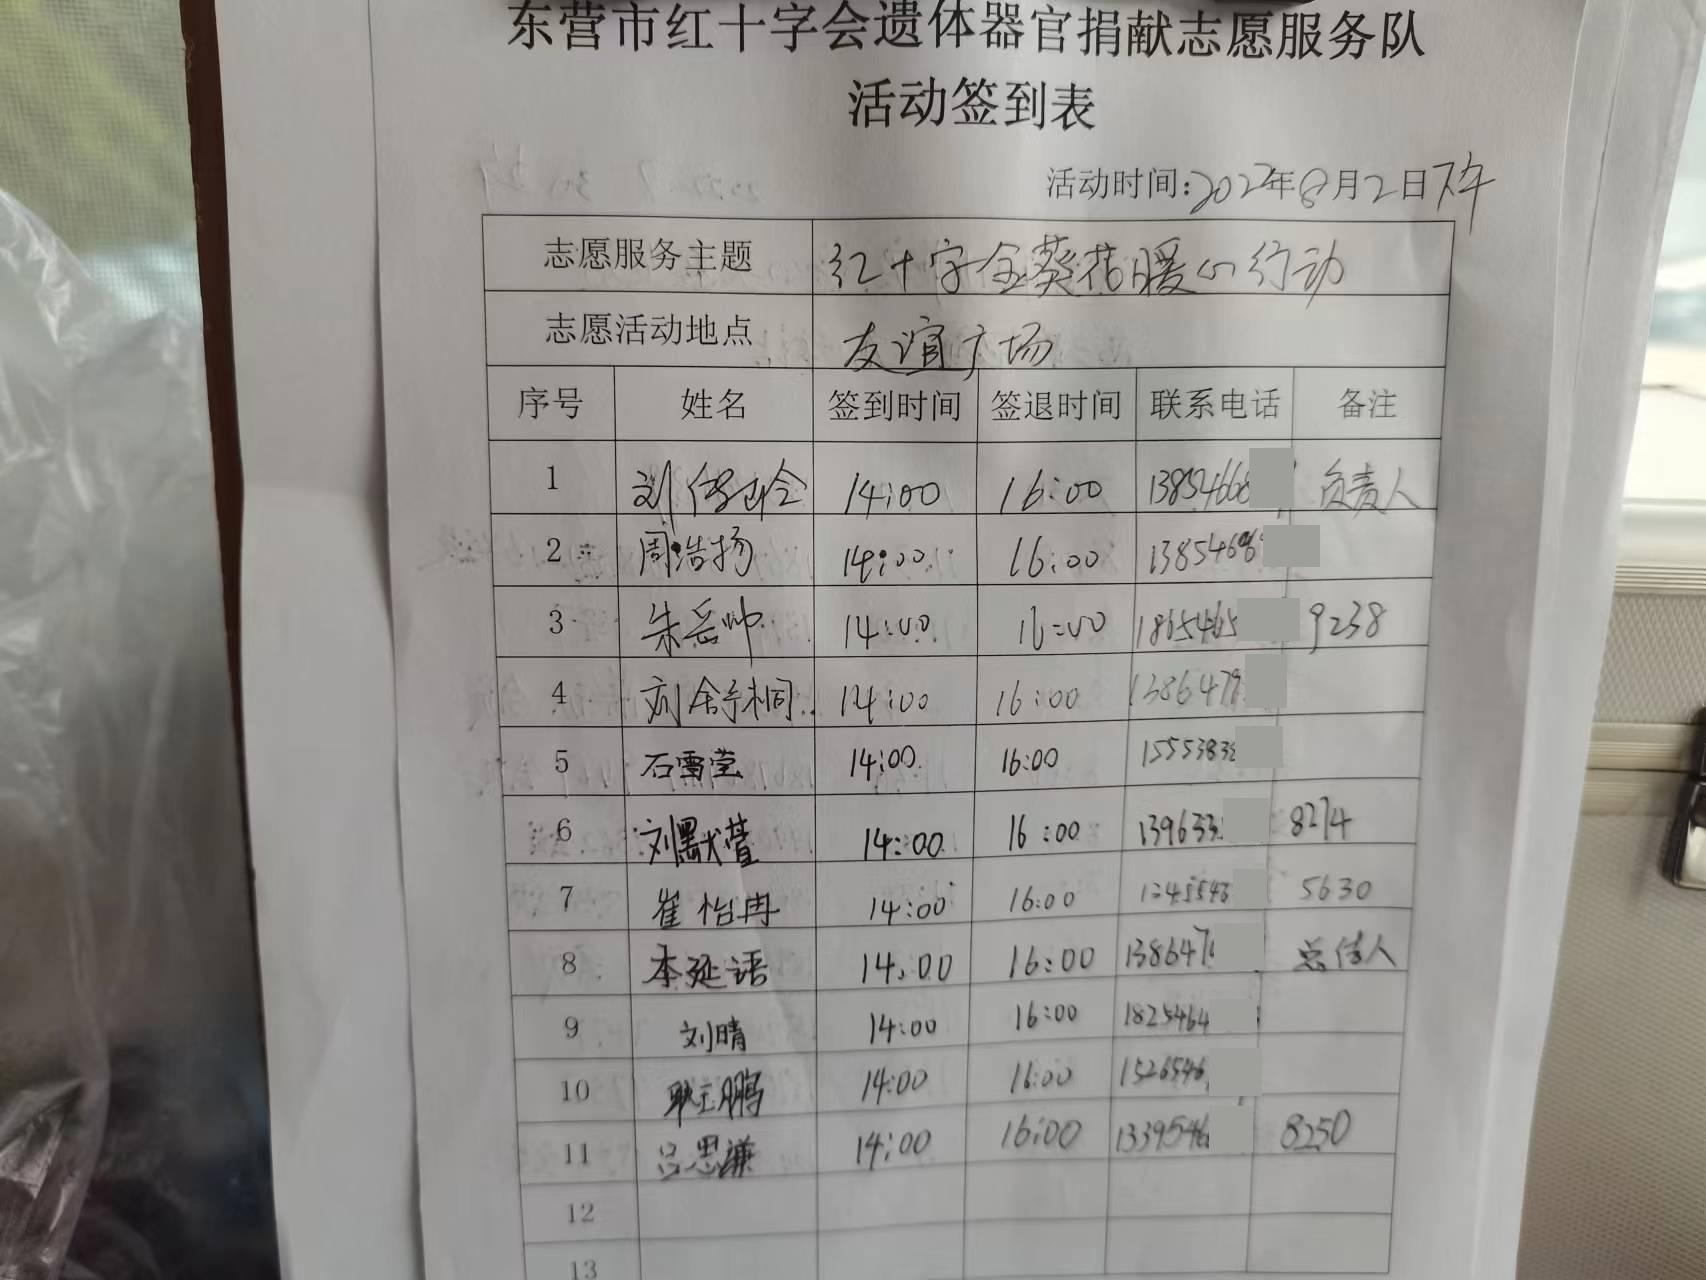 东营市红十字会遗体器官捐献志愿服务队
活动签到表
活动时间:2022年8月2日下午
志愿服务主题 红十字金葵花暖心行动
志愿活动地点 友谊广场
序号 姓名 签到时间 签退时间 联系电话 备注
1 刘 14:00 16:00 13854668 负责人
2 周浩扬 14:00 16:00 13854686
3 朱岳帅 14:00 16:00 18654665 9238
4 刘舒桐 14:00 16:00 1386479
5 石雪莹 14:00 16:00 1555383
6 刘默萱 14:00 16:00 139633 8274
7 崔怡冉 14:00 16:00 5630
8 本延语 14:00 16:00 138647 总传人
9 刘晴 14:00 16:00 1825464
10 耿玉鹏 14:00 16:00 1526546
11 吕思谦 14:00 16:00 1339546 8250
12
13